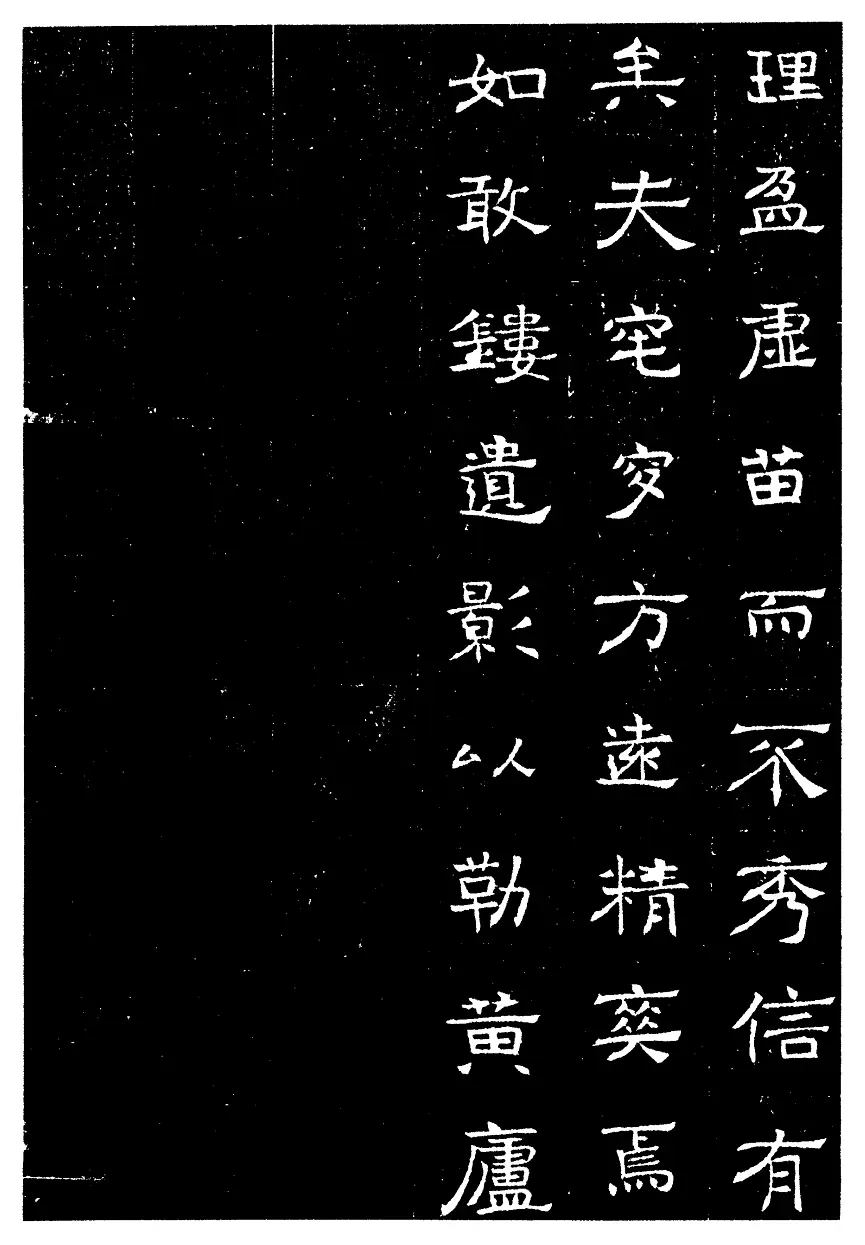 理盈虛苗而不秀信有
矣夫窀穸方遠精爽焉
如敢鏤遺影以勒黃廬